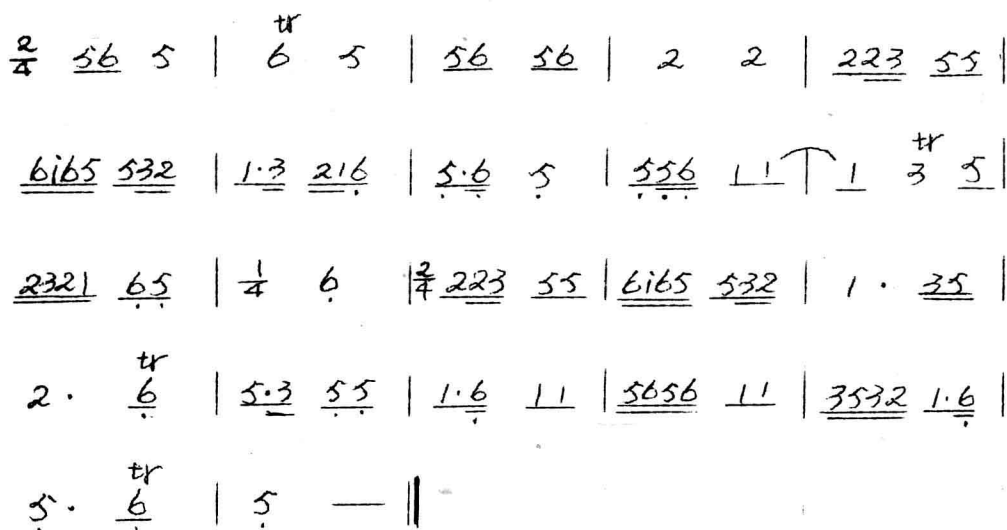 2/4 56 5 | tr6 5 | 56 56 | 2 2 | 223 55 |
6i65 532 | 1·3 216̣ | 5̣·6̣ 5̣ | 5̣5̣6̣ 11 | 1 tr3 5 |
2321 6̣5̣ | 1/4 6̣ | 2/4 223 55 | 6i65 532 | 1· 35 |
2· tr6̣ | 5̣·3 5̣5̣ | 1·6̣ 11 | 5656 11 | 3532 1·6̣ |
5̣· tr6̣ | 5̣ — ‖